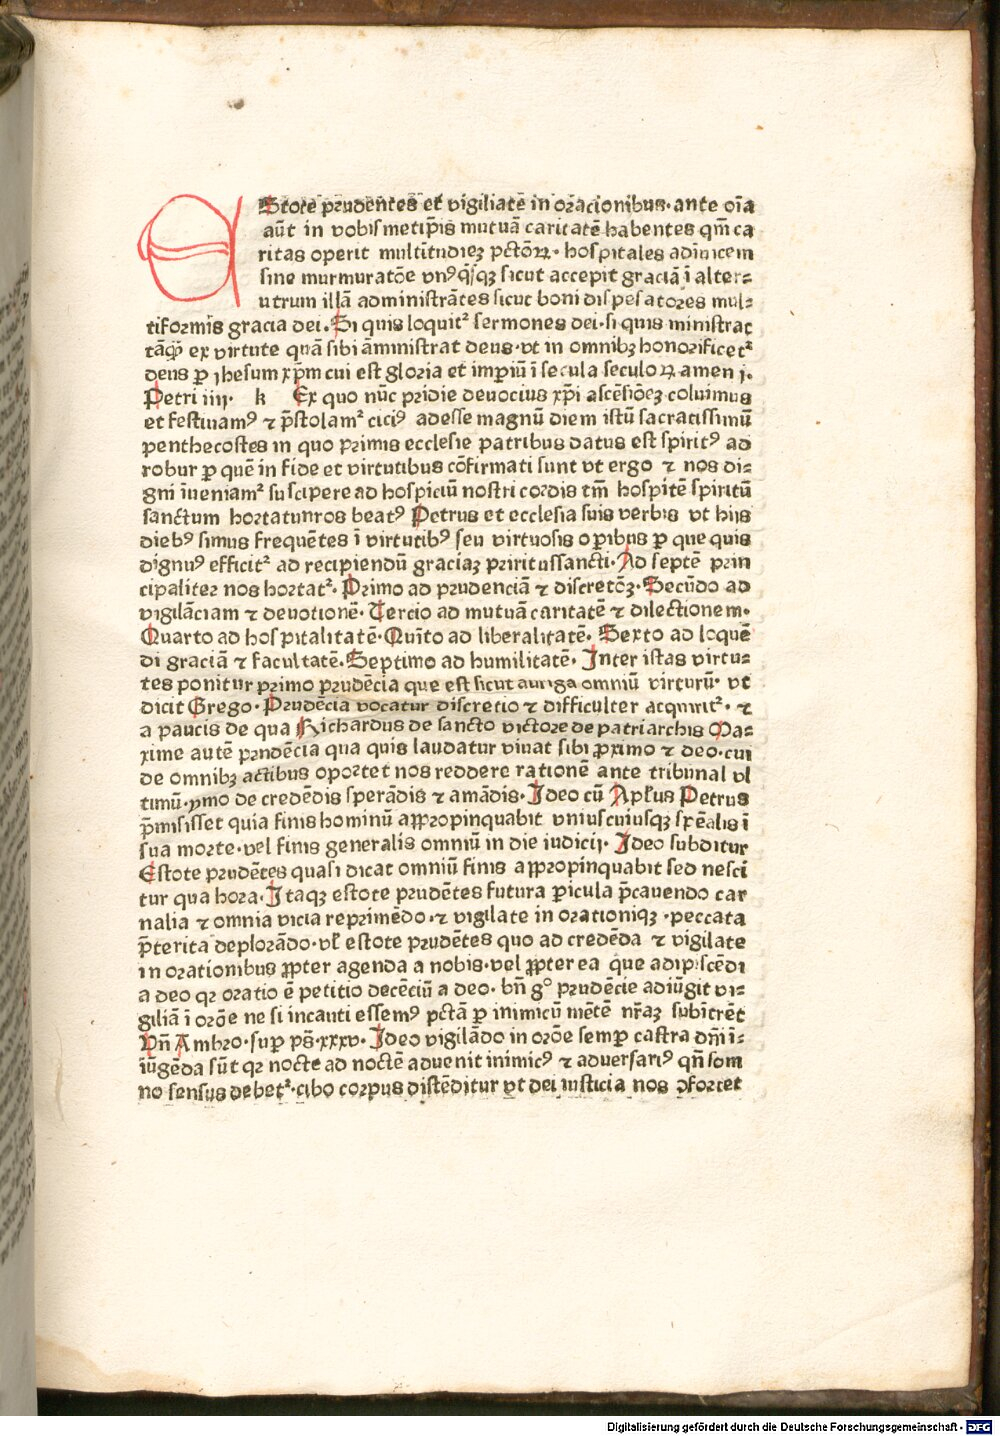 EStote prudentes et vigiliatē in oracionibus· ante oīa
aūt in vobis metip̄is mutuā caritatē habentes qm̄ ca
ritas operit multītudieꝫ pctōꝝ· hospitales adīuicem
sine murmuratōe vnꝰqͥsqꝫ sicut accepit graciā ī alter⸗
utrum illā administrātes sicut boni dispēsatores mul⸗
tiformis gracia dei. Si quis loquit᷑ sermones dei· si quis ministrat
tāqꝫ ex virtute quā sibi āministrat deus· vt in omnibꝫ honorificet᷑
deus ꝑ ihesum xp̄m cui est gloria et imꝑiū ī secula seculoꝝ amen j.
Petri iiij· k Ex quo nūc pridie deuocius xp̄i ascēsiōeꝫ coluimus
et festinamꝰ ⁊ p̄stolam᷑ ciciꝰ adesse magnū diem istū sacratissimū
penthecostes in quo primis ecclesie patribus datus est spiritꝰ ad
robur ꝑ quē in fide et virtutibus cōfirmati sunt vt ergo ⁊ nos di⸗
gni īueniam᷑ suscipere ad hospiciū nostri cordis tm̄ hospitē spiritū
sanctum hortatur nos beatꝰ Petrus et ecclesia suis verbis vt hijs
diebꝰ simus frequētes ī virtutibꝰ seu virtuosis oꝑibus ꝑ que quis
dignuꝰ efficit᷑ ad recipiendū graciaꝫ spiritussancti· Ad septē prin
cipaliter nos hortat᷑· Primo ad prudenciā ⁊ discretōꝫ· Secūdo ad
vigilāciam ⁊ deuotionē· Tercio ad mutuā caritatē ⁊ dilectionem·
Quarto ad hospitalitatē· Quīto ad liberalitatē· Sexto ad loquē
di graciā ⁊ facultatē· Septimo ad humilitatē· Inter istas virtu⸗
tes ponitur primo prudēcia que est sicut auriga omniū virtutū· vt
dicit Grego· Prudēcia vocatur discretio ⁊ difficulter acquirit᷑· ⁊
a paucis de qua Richardus de sancto victore de patriarchis Ma⸗
xime autē prndēcia qua quis laudatur viuat sibi ꝓximo ⁊ deo· cui
de omnibꝫ actibus oportet nos reddere rationē ante tribunal vl
timū· pͥmo de credēdis sperādis ⁊ amādis· Ideo cū Apl̄us Petrus
p̄misisset quia finis hominū appropinquabit vniuscuiusqꝫ sp̄ealis ī
sua morte· vel finis generalis omniū in die iudicij· Ideo subditur
Estote prudētes quasi dicat omniū finis appropinquabit sed nesci
tur qua hora· Itaqꝫ estote prudētes futura ꝑicula p̄cauendo car
nalia ⁊ omnia vicia reprimēdo· ⁊ vigilate in orationiqꝫ · peccata
p̄terita deplorādo· vl̄ estote prudētes quo ad credēda ⁊ vigilate
in orationibus ꝓpter agenda a nobis· vel ꝓpter ea que adipiscēdi
a deo qr oratio ē petitio decēciū a deo· bn̄ gͦ prudēcie adiūgit vi⸗
giliā ī orōe ne si incauti essemꝰ pctā ꝑ inimicū mētē nr̄aꝫ subītrēt
Vn̄ Ambro· suꝑ ps̄· xxxv· Ideo vigilādo in orōe semꝑ castra dn̄i ī⸗
iūgēda sūt qr nocte ad noctē aduenit inimicꝰ ⁊ aduersariꝰ qn̄ som
no sensus debet᷑· cibo corpus distēditur vt dei iusticia nos ↄfortet
Digitalisierung gefördert durch die Deutsche Forschungsgemeinschaft - DFG